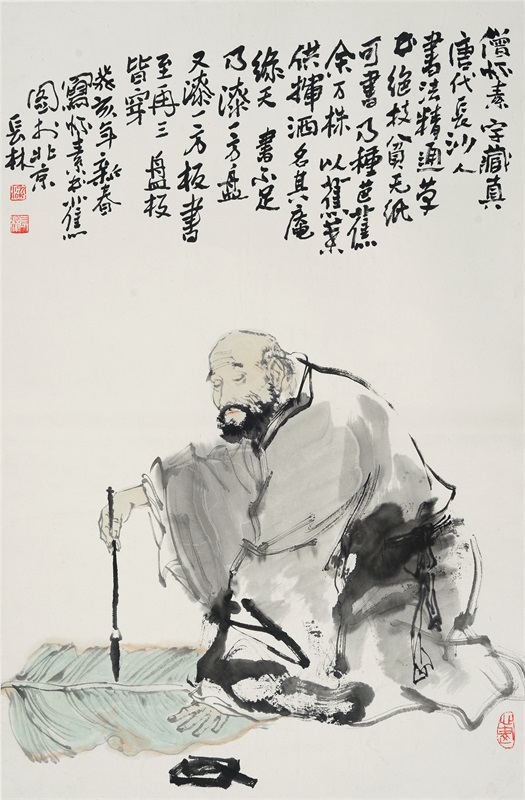 僧怀素 字藏真
唐代長沙人
書法精通草
书绝技貧无纸
可書乃種芭蕉
余万株 以蕉葉
供揮洒名其庵
绿天 書不足
乃漆一方盘
又漆一方板書
至再三 盘板
皆穿
癸亥年新春
寫怀素书蕉
图于北京
岳林